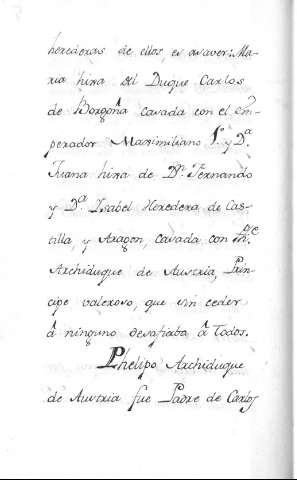 herederas de ellos, es asaver: Ma-
ria hixa del Duque Carlos
de Borgoña Casada con el em-
perador Maximiliano 1.º y D.ª
Juana hixa de D.n Fernando
y D.ª Isabel Heredera de Cas-
tilla y Aragon, Casada con Ph.e
Archiduque de Austria, Prin-
cipe valeroso, que sin ceder
â ninguno desafiaba â Todos.
Phelipo Archiduque
de Austria fue Padre de Carlos